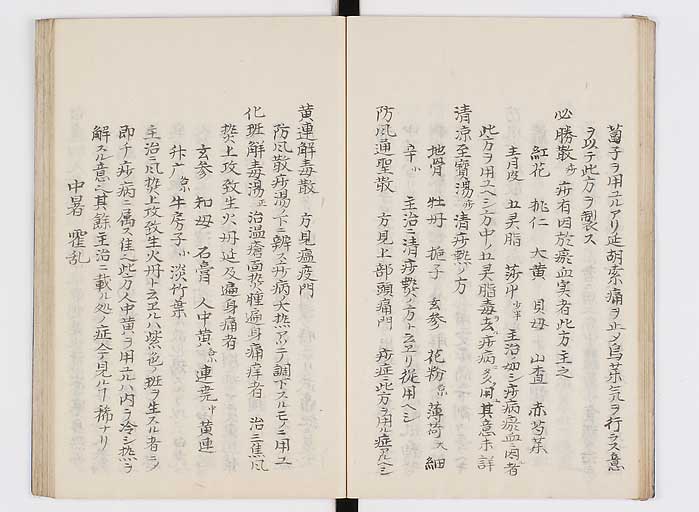 蔔子ヲ用ユルアリ延胡索痛ヲ止メ烏茱気ヲ行ラス意
ヲ以テ此方ヲ製ス
必勝散 痧 痧有因於瘀血実者此方主之
紅花 桃仁 大黄 貝母 山査 赤芍薬
青皮 五灵脂 莎中 主治如シ痧病瘀血ニ因者
此方ヲ用ユヘシ方中ノ五灵脂毒玄痧病ニ多用其意未詳
清凉至寶湯 痧 清痧熱ノ方
地骨 牡丹 梔子 玄参 花粉 薄荷 細
辛 小 主治ニ清痧熱ノ方ト云ヨリ従用ヘシ
防風通聖散 方見上部頭痛門 痧症ニ此方ヲ用ル症アルヘシ
黄連解毒散 方見瘟疫門
防風散痧湯ノ下ニ辨ス痧病大熱アリテ調下スルモノニ用ユ
化斑解毒湯 正 治温瘡面熱腫遍身痛痒者 治三焦風
熱上攻致生火丹延及遍身痛者
玄参 知母 石膏 人中黄 連堯 中 黄連
升广 牛房子 小 淡竹葉
主治ニ風熱上攻致生火丹ト云ヱルハ紫色ノ斑ヲ生スル者ヲ
即チ痧病ニ属ス隹之此方人中黄ヲ用ユルハ内ヲ冷シ熱ヲ
解スル意之其餘主治ニ載ル処ノ症今見ルヿ稀ナリ
中暑 霍乱